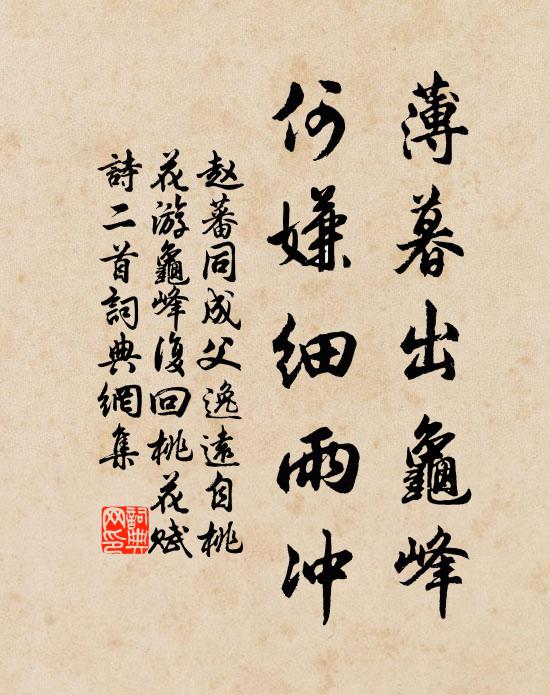 薄暮出龜峰
何嫌细雨冲
赵蕃同成父逸遠自桃
花游龜峰復回桃花赋
詩二首詞典網集
詞典网印